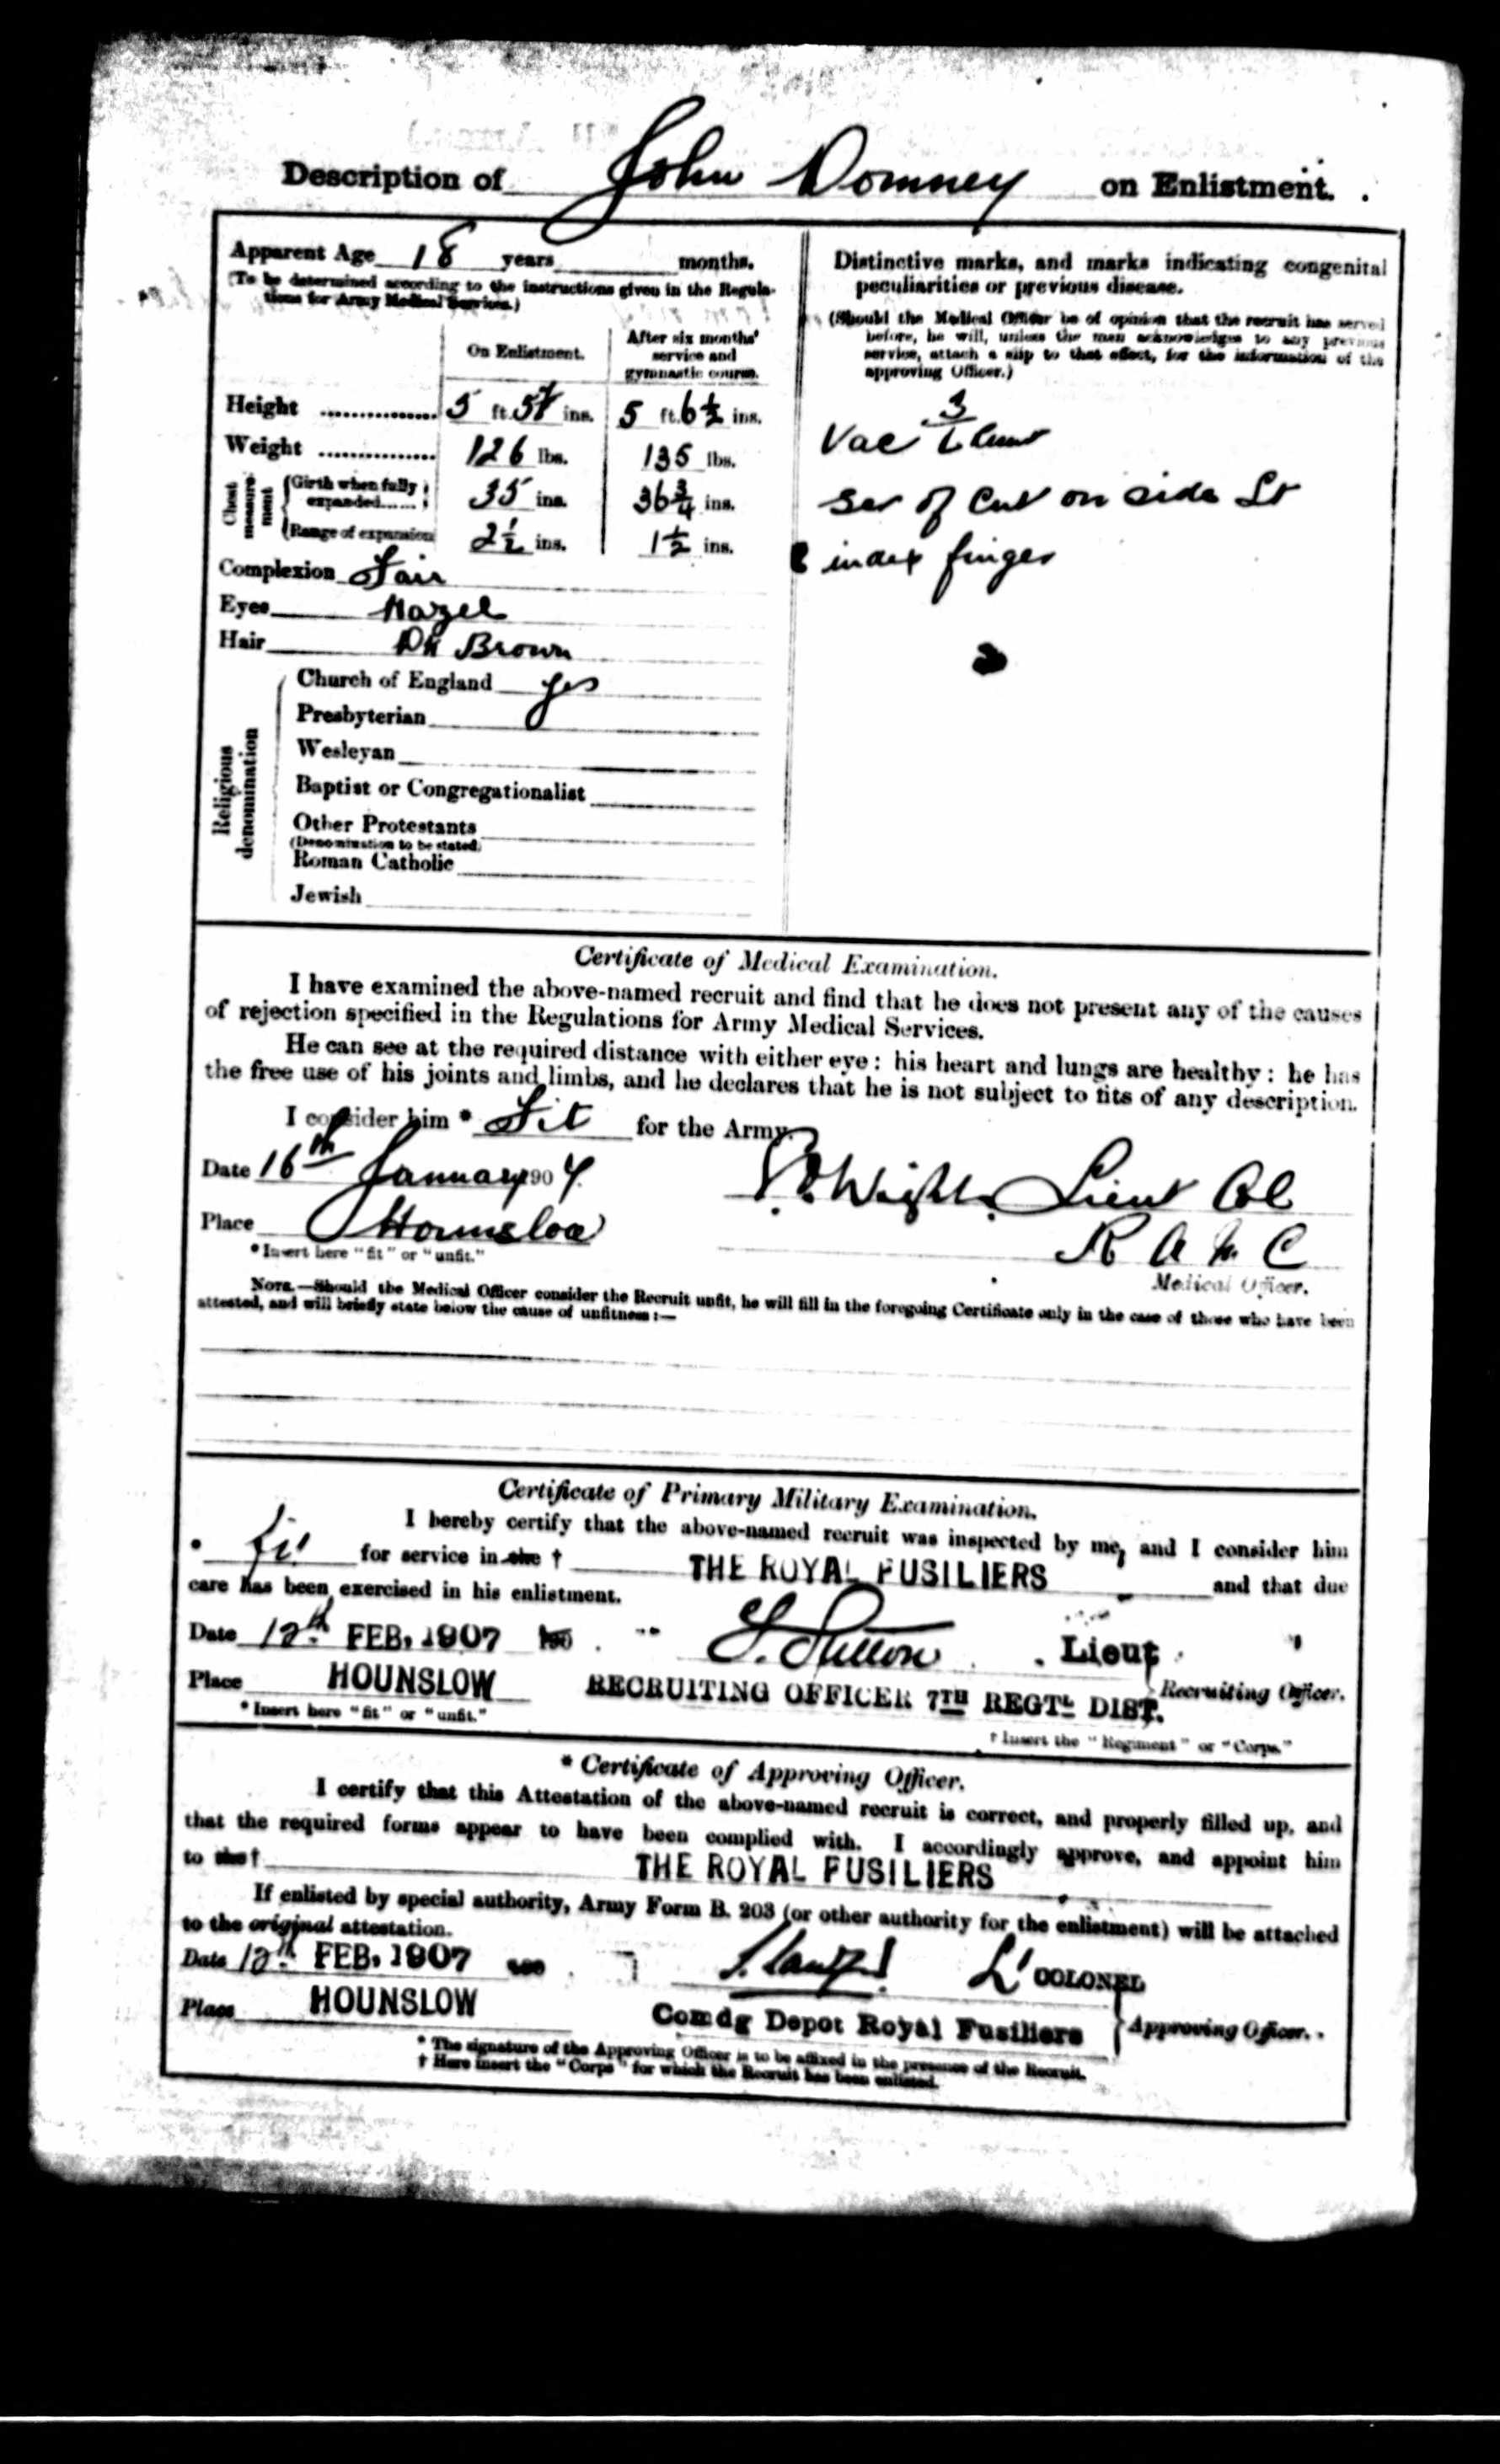 Description of John Domney on Enlistment.
Apparent Age 18 years months.
(To be determined according to the instructions given in the Regula-
tions for Army Medical Services.)
On Enlistment.
After six months'
service and
gymnastic course.
Height ............... 5 ft. 5 ins. 5 ft. 6½ ins.
Weight ............... 126 lbs. 135 lbs.
Chest measurement
Girth when fully expanded...... 35 ins. 36¾ ins.
Range of expansion 2½ ins. 1½ ins.
Complexion Fair
Eyes Hazel
Hair Dk Brown
Religious denomination
Church of England yes
Presbyterian
Wesleyan
Baptist or Congregationalist
Other Protestants
(Denomination to be stated)
Roman Catholic
Jewish
Distinctive marks, and marks indicating congenital
peculiarities or previous disease.
(Should the Medical Officer be of opinion that the recruit has served
before, he will, unless the man acknowledges to any previous
service, attach a slip to that effect, for the information of the
approving Officer.)
Vac 3
of cut on side Lt
index finger
Certificate of Medical Examination.
I have examined the above-named recruit and find that he does not present any of the causes
of rejection specified in the Regulations for Army Medical Services.
He can see at the required distance with either eye: his heart and lungs are healthy: he has
the free use of his joints and limbs, and he declares that he is not subject to fits of any description.
I consider him * Fit for the Army.
Date 16th January 1907
Wright. Lieut Col
Place Hounslow
R A M C
* Insert here "fit" or "unfit."
Medical Officer.
NOTE.—Should the Medical Officer consider the Recruit unfit, he will fill in the foregoing Certificate only in the case of those who have been
attested, and will briefly state below the cause of unfitness:—
Certificate of Primary Military Examination.
I hereby certify that the above-named recruit was inspected by me, and I consider him
* fit for service in the † THE ROYAL FUSILIERS and that due
care has been exercised in his enlistment.
Date 12th FEB. 1907 190 Sutton Lieut
Place HOUNSLOW RECRUITING OFFICER 7TH REGTL DIST. Recruiting Officer.
* Insert here "fit" or "unfit."
† Insert the "Regiment" or "Corps."
* Certificate of Approving Officer.
I certify that this Attestation of the above-named recruit is correct, and properly filled up, and
that the required forms appear to have been complied with. I accordingly approve, and appoint him
to the † THE ROYAL FUSILIERS
If enlisted by special authority, Army Form B. 203 (or other authority for the enlistment) will be attached
to the original attestation.
Date 12th FEB. 1907 Lt COLONEL
Place HOUNSLOW Comdg Depot Royal Fusiliers Approving Officer.
* The signature of the Approving Officer is to be affixed in the presence of the Recruit.
† Here insert the "Corps" for which the Recruit has been enlisted.